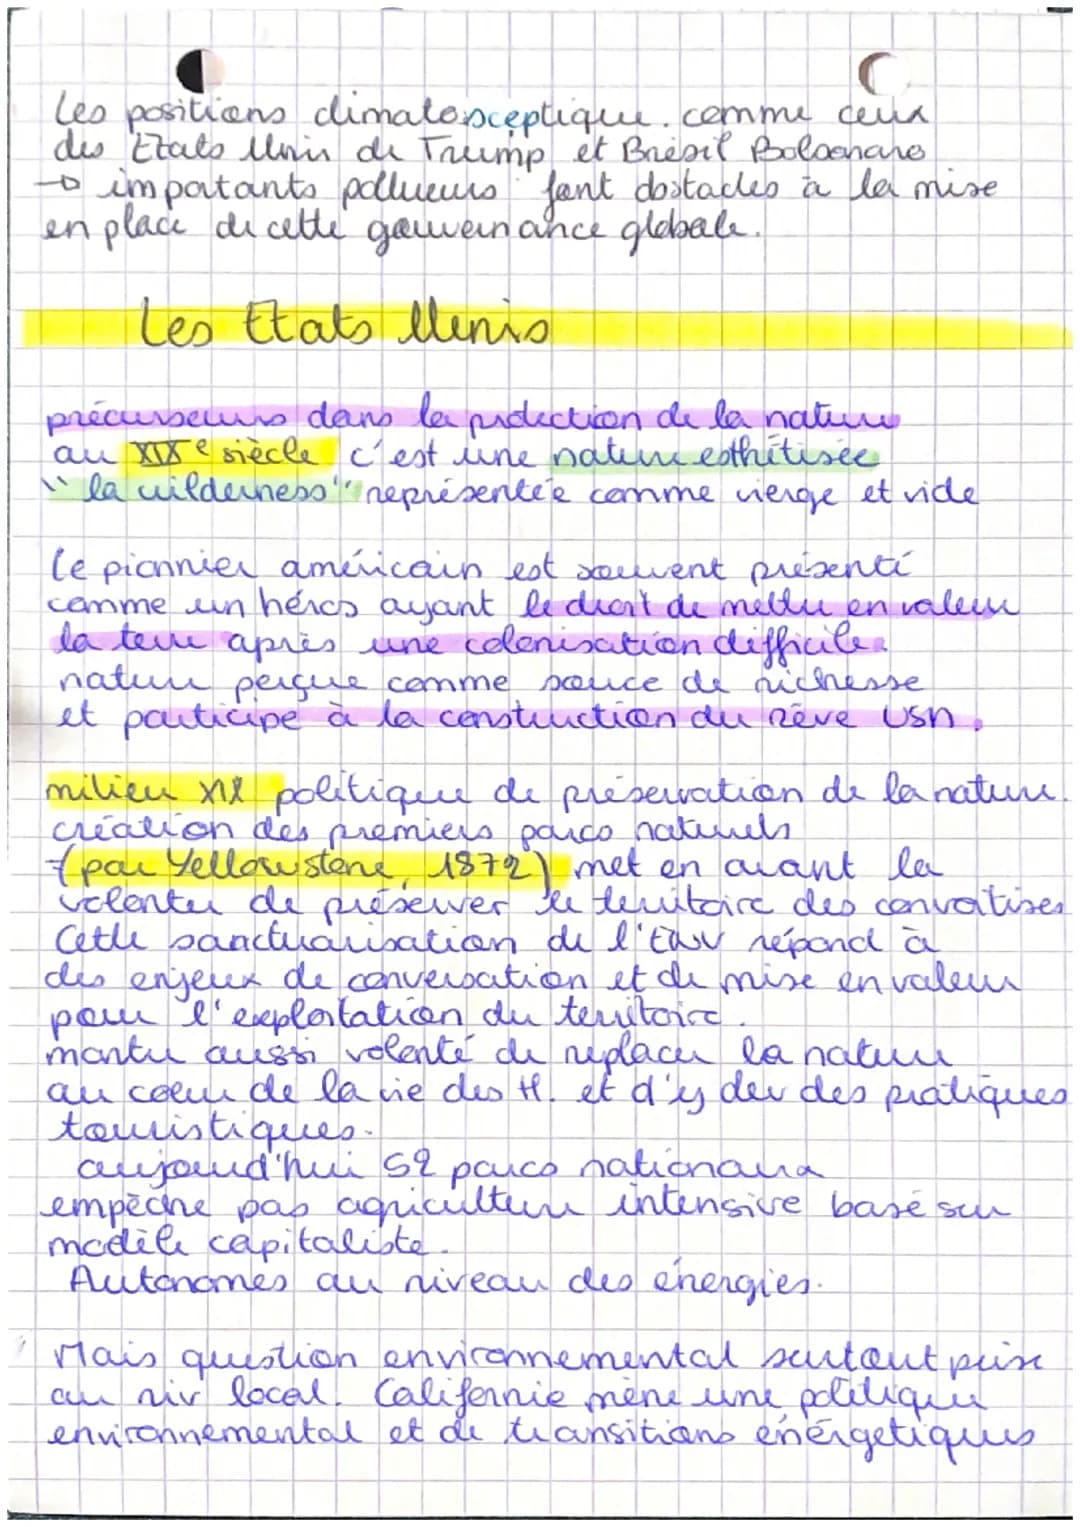 les positions climatosceptique. comme ceux
des Etats Unis de Trump et Brésil Bolsonaro
→ importants pollueurs font obstacles à la mise
en place de cette gouvernance globale.
Les Etats Unis
précurseurs dans la protection de la nature
au XIXe siècle c'est une nature esthétisée
"la wilderness" représentée comme vierge et vide
le pionnier américain est souvent présenté
comme un héros ayant le droit de mettre en valeur
la terre après une colonisation difficile.
nature perçue comme source de richesse
et participe à la construction du rêve USA.
milieu XIX politique de préservation de la nature.
création des premiers parcs naturels
(par Yellowstone, 1872) met en avant la
volonter de préserver le territoire des convoitises
Cette sanctuarisation de l'env répond à
des enjeux de conversation et de mise en valeur
pour l'exploitation du territoire.
montre aussi volonté de replacer la nature
au coeur de la vie des H. et d'y dev des pratiques
touristiques.
aujourd'hui 52 parcs nationaux
empêche pas agriculture intensive basé sur
modèle capitaliste.
Autonomes au niveau des énergies.
Mais question environnemental surtout prise
au niv local. Californie mène une politique
environnemental et de transitions énérgetiques